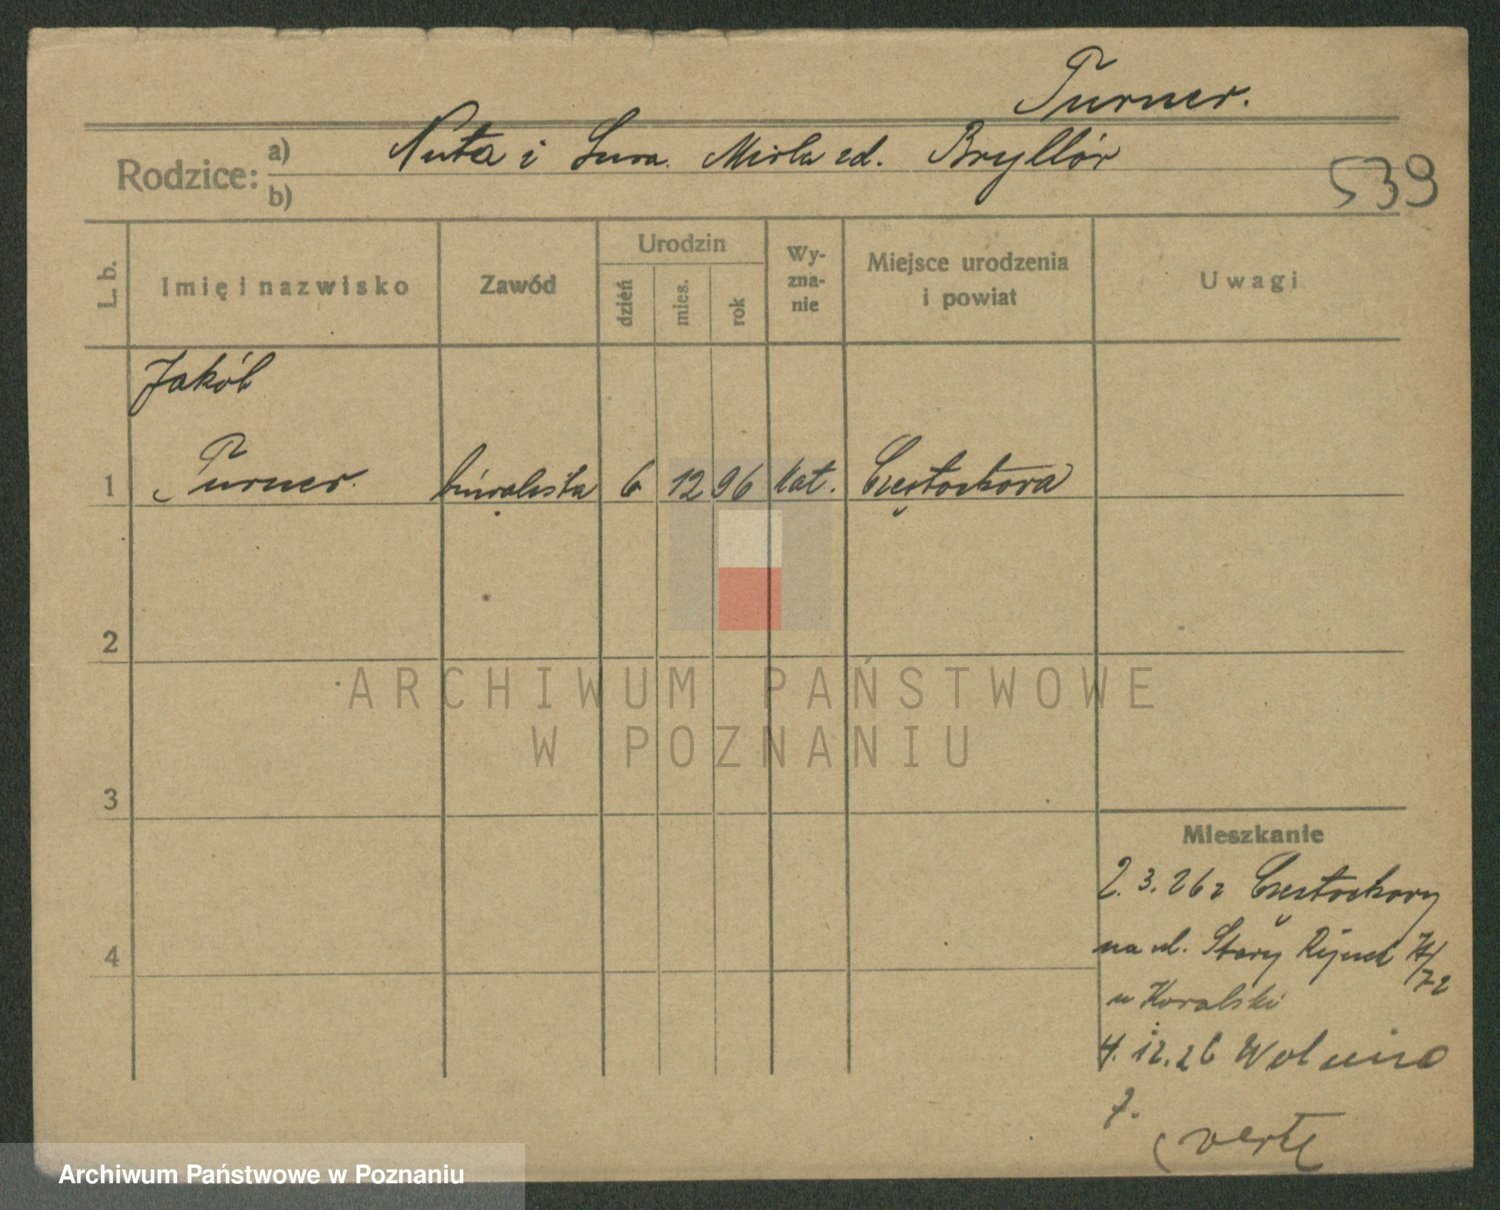 Turner.
Rodzice: a) Nuta i Sura. Mirla zd. Bryllór
b)
539
L. b.
Imię i nazwisko
Zawód
Urodzin
dzień
mies.
rok
Wy-
zna-
nie
Miejsce urodzenia
i powiat
Uwagi
Jakób
1 Turner. biuralista 6 12 96 kat. Częstochowa
2
ARCHIWUM PAŃSTWOWE
W POZNANIU
3
Mieszkanie
2.3.26 z Częstochowy
4
na ul. Stary Rynek
72
u Kowalski
4.12.26 Wolnica
7.
verte
Archiwum Państwowe w Poznaniu